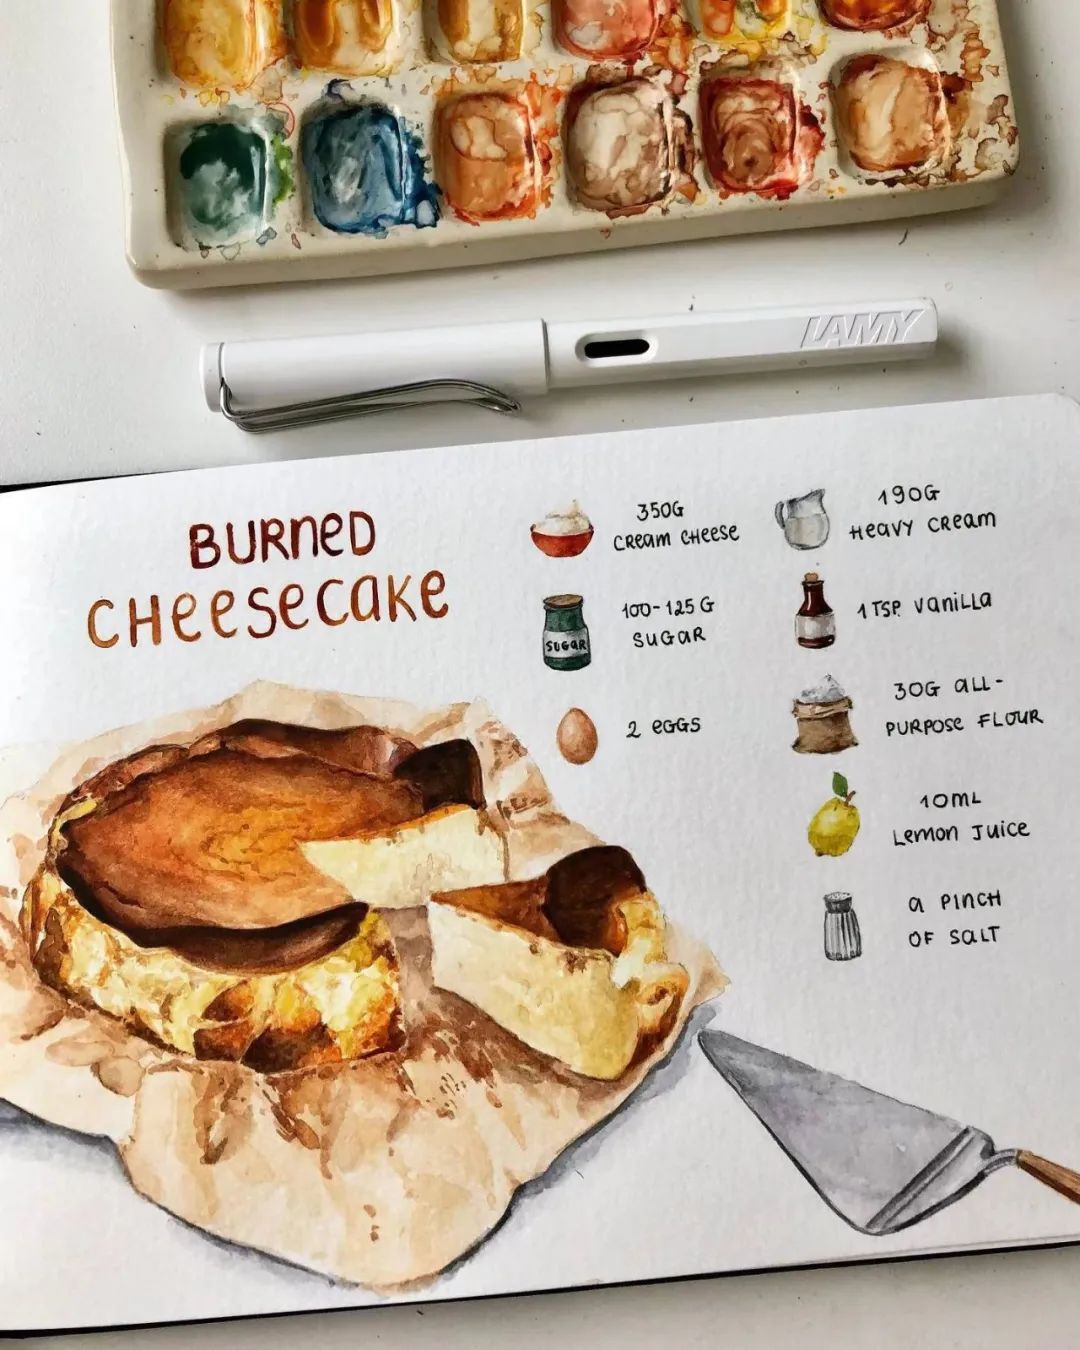 LAMY
BURNED
CHEESECAKE
350G
CREAM CHEESE
190G
HEAVY CREAM
100-125 G
SUGAR
SUGAR
1 TSP. VANILLA
2 EGGS
30G ALL-
PURPOSE FLOUR
10ML
LEMON JUICE
A PINCH
OF SALT